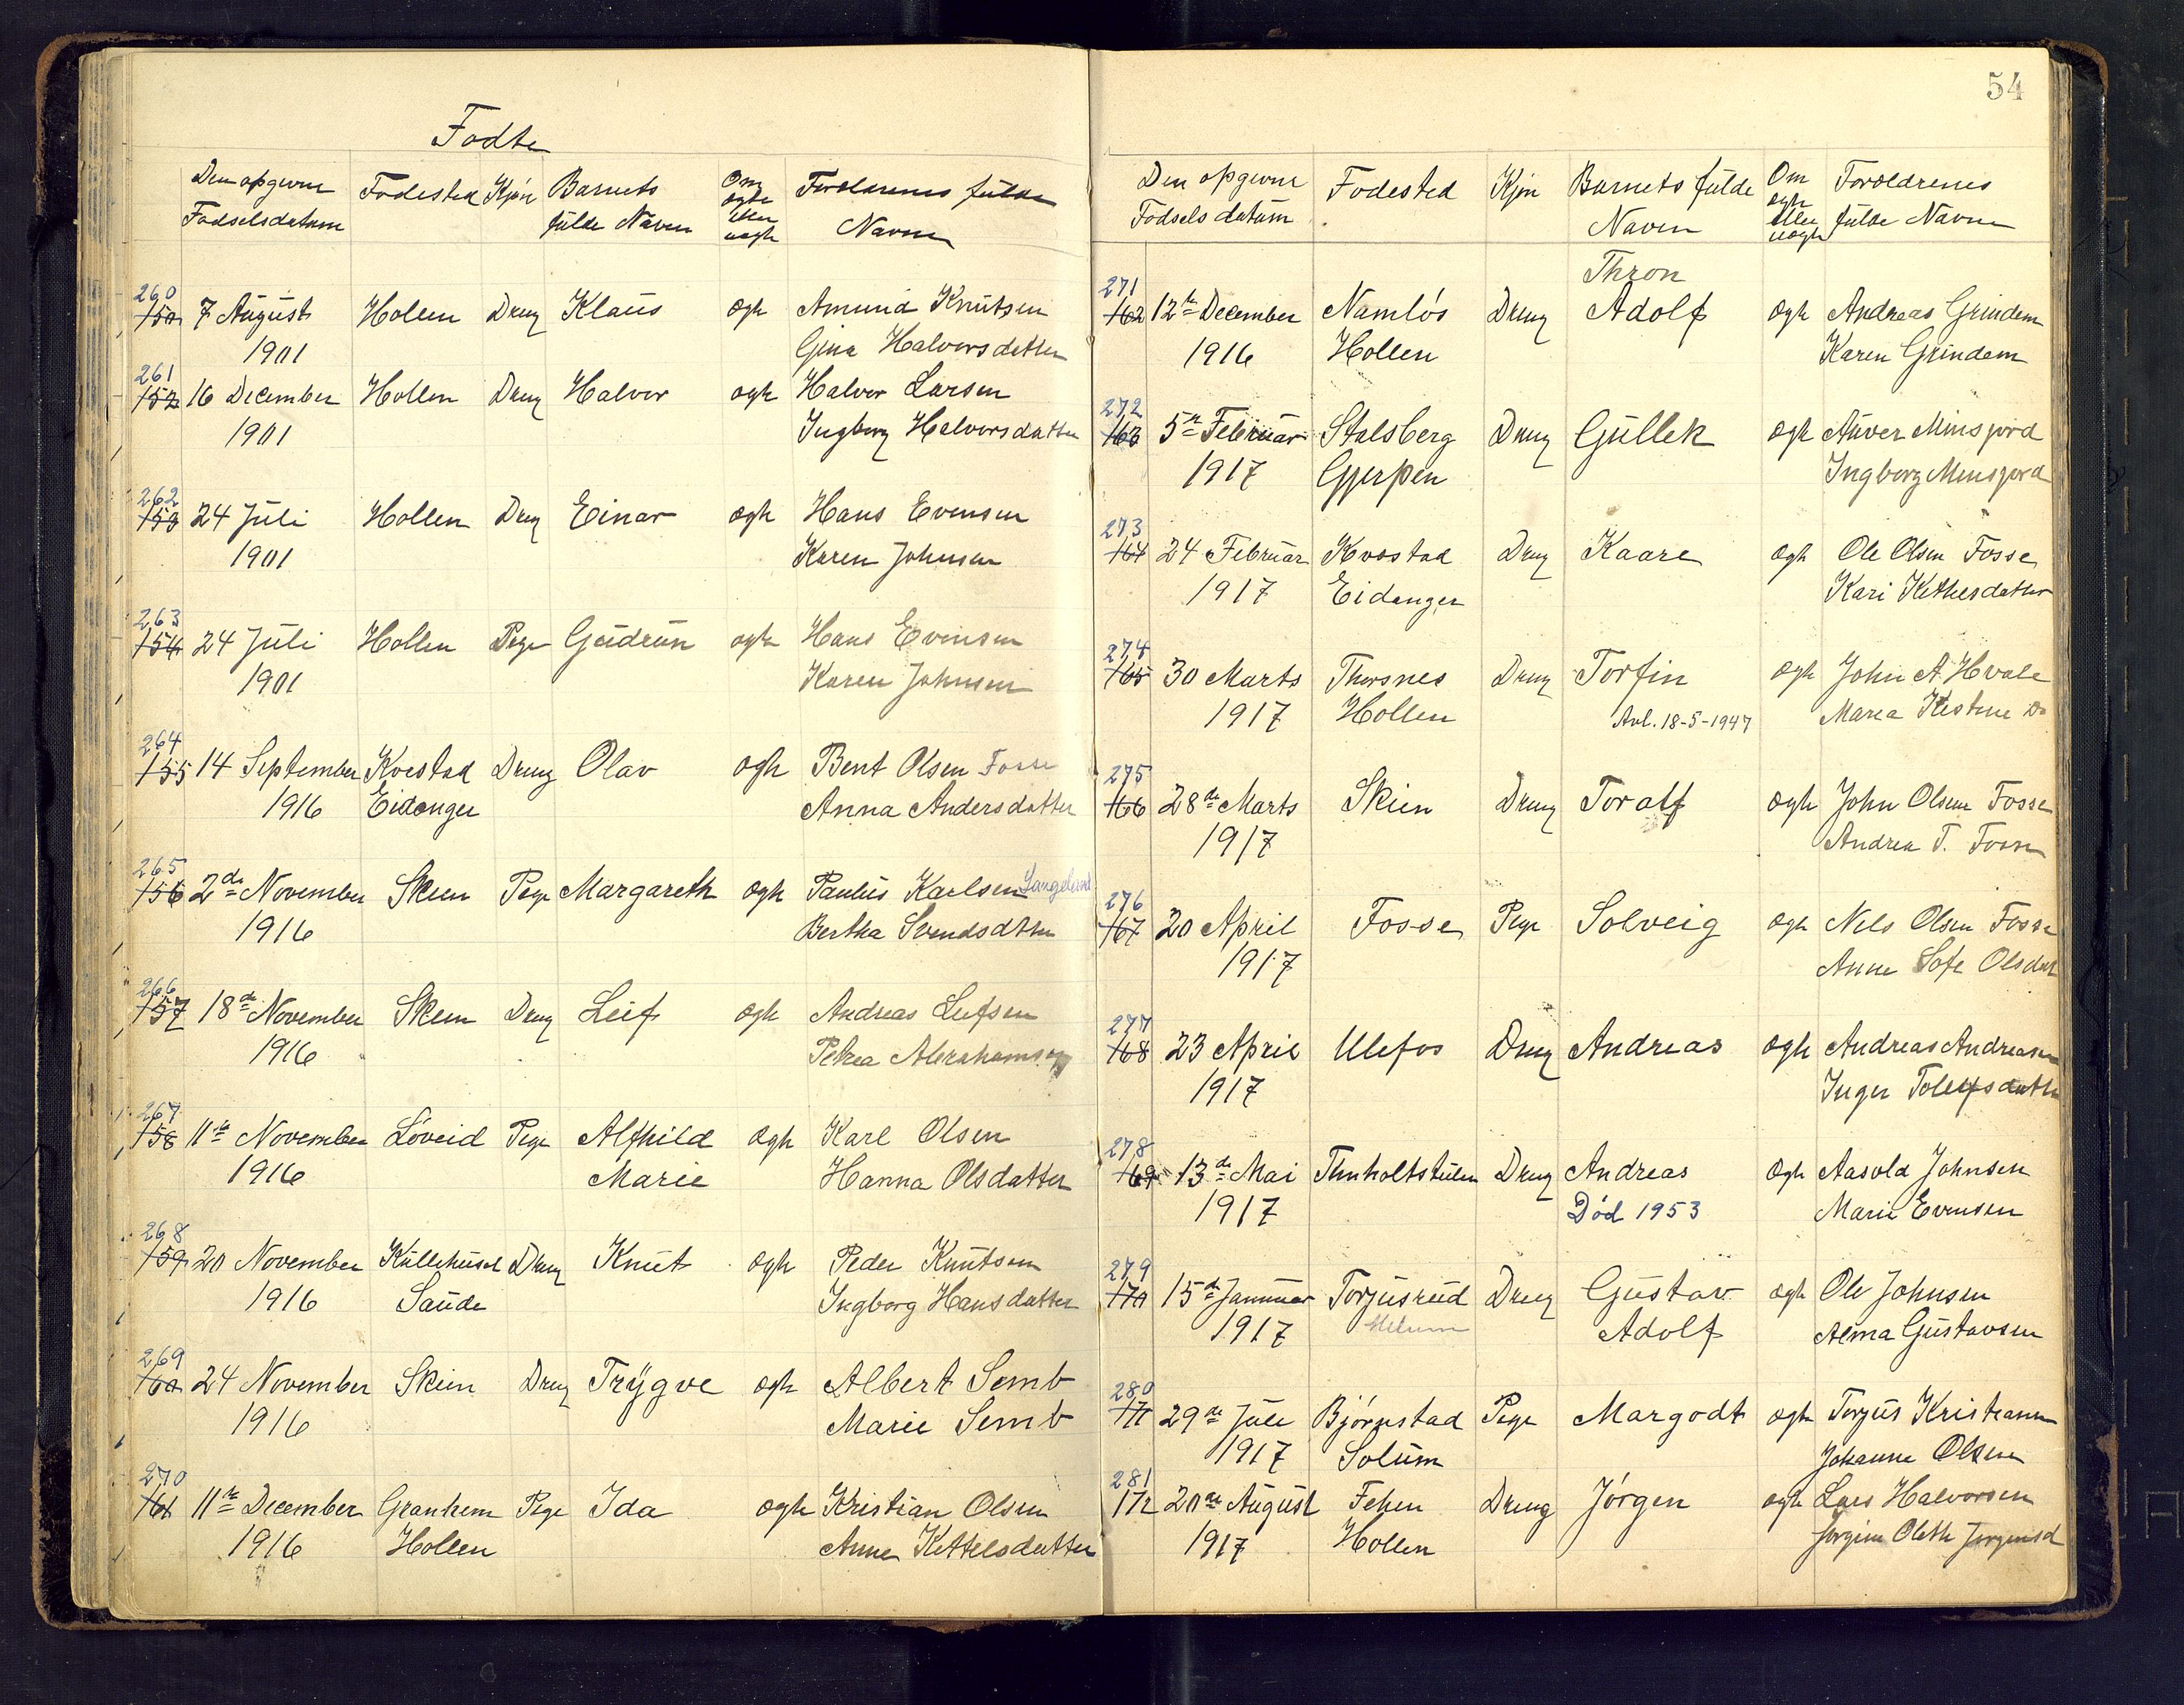 Fødte
Den opgivne Fødested Kjøn Barnets Om Forældrenes fulde
Fødselsdatum fulde Navn ægte eller uægte Navne
260
151 7 August Holen Dreng Klaus ægte Amund Knutsen
1901 Gina Halvorsdatter
261
152 16 December Hollen Dreng Halvor ægte Halvor Larsen
1901 Ingborg Halvorsdatter
262
153 24 Juli Hollen Dreng Einar ægte Hans Evensen
1901 Karen Johnsen
263
154 24 Juli Hollen Pige Gudrun ægte Hans Evensen
1901 Karen Johnsen
264
155 14 September Kvestad Dreng Olav ægte Bent Olsen Fosse
1916 Eidanger Anna Andersdatter
265
156 2de November Skien Pige Margareth ægte Paulus Karlsen Langeland
1916 Bertha Svendsdtter
266
157 18de November Skien Dreng Leif ægte Andreas Leifsen
1916 Petrea Abrahamsen
267
158 11te November Løveid Pige Alfhild ægte Karl Olsen
1916 Marie Hanna Olsdatter
268
159 20 November Kullehuset Dreng Knut ægte Peder Knutsen
1916 Saude Ingborg Hansdatter
269
160 24 November Skien Dreng Trygve ægte Albert Semb
1916 Marie Semb
270
161 11te December Granhem Pige Ida ægte Kristian Olsen
1916 Hollen Anne Kettelsdatter
54
Den opgivne Fødested Kjøn Barnets fulde Om Forældrenes
Fødselsdatum Navn ægte eller uægte fulde Navne
271 Thron
162 12te December Namløs Dreng Adolf ægte Andreas Grindem
1916 Hollen Karen Grindem
272
163 5te Februar Stalsberg Dreng Gullek ægte Auver Minsjord
1917 Gjerpen Ingborg Minsjord
273
164 24 Februar Kvestad Dreng Kaare ægte Ole Olsen Fosse
1917 Eidanger Kari Kittelsdatter
274
165 30 Marts Thorsnes Dreng Torfin ægte John A. Hvale
1917 Hollen Avl. 18-5-1947 Marea Kistine Do
275
166 28de Marts Skien Dreng Toralf ægte John Olsen Fosse
1917 Andrea T. Fosse
276
167 20 April Fosse Pige Solveig ægte Nels Olsen Fosse
1917 Anne Sofe Olsdat
277
168 23 April Ulefos Dreng Andreas ægte Andreas Andreasen
1917 Inger Tolefsdatter
278
169 13de Mai Dreng Andreas ægte Aasold Johnsen
1917 Død 1953 Marie Evensen
279
170 15de Januar Torjusrud Dreng Gustav ægte Ole Johnsen
1917 Melum Adolf Alma Gustavsen
280
171 29de Juli Bjørnstad Pige Margodt ægte Torjus Kristiansen
1917 Solum Johanne Olsen
281
172 20de August Fehen Dreng Jørgen ægte Lars Halvorsen
1917 Hollen Jørgine Oleth Jørgensd